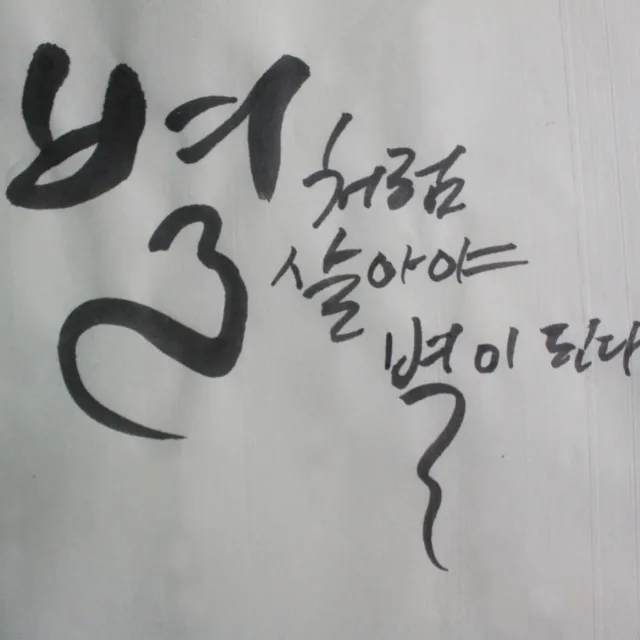 별처럼
살아야
별이 된다